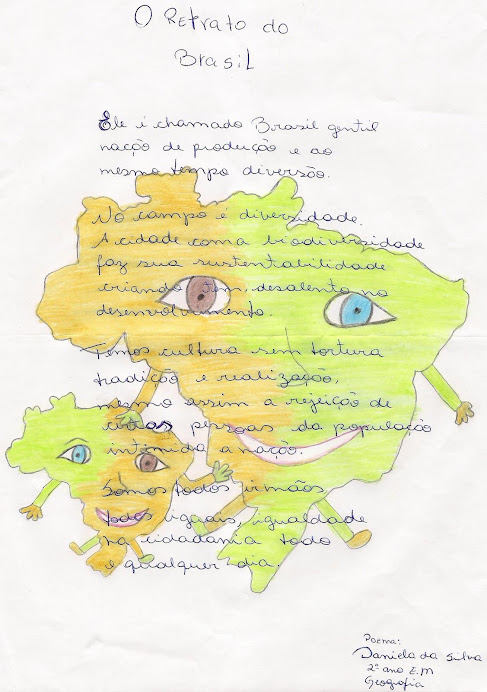 O Retrato do
Brasil
Ele é chamado Brasil gentil
nação de produção e ao
mesmo tempo diversão.
No campo é diversidade.
A cidade com a biodiversidade
faz sua sustentabilidade
criando um desalento no
desenvolvimento.
Temos cultura sem tortura
tradição e realização,
mesmo assim a rejeição de
certas pessoas da população
intimida a nação.
Somos todos irmãos
todos iguais, igualdade
na cidadania todo
e qualquer dia.
Poema:
Daniela da Silva
2º ano E.M
Geografia